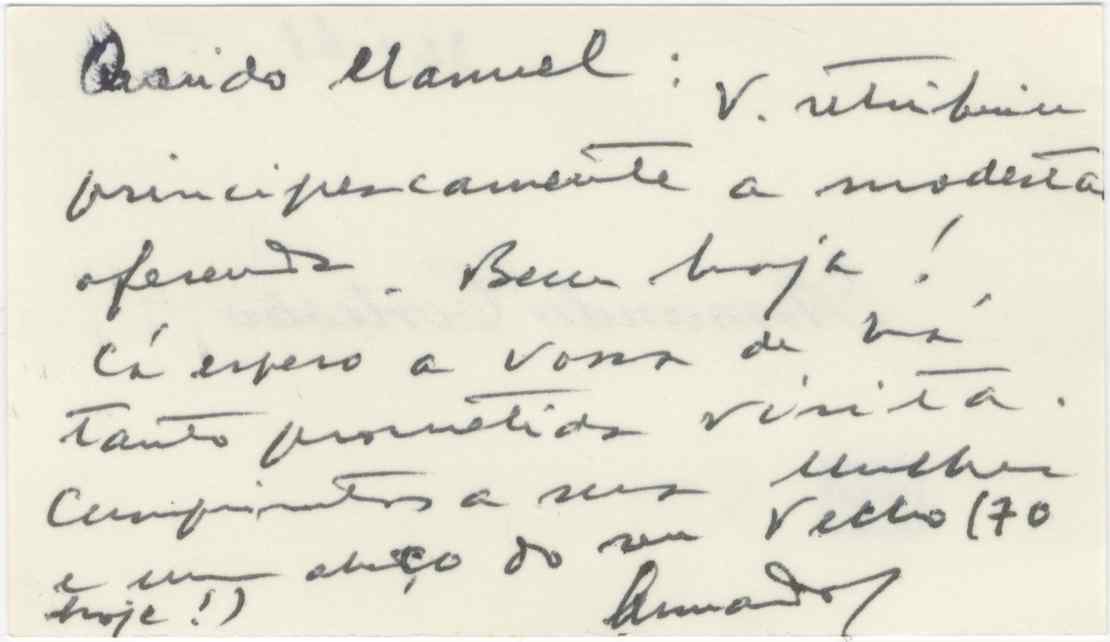 Querido Manuel :
V. retribuiu
principescamente a modesta
oferenda. Bem haja !
Cá espero a vossa de há
tanto prometida visita.
Cumprimtos a sua mulher
e um abraço do seu velho (70
hoje!)
Armando